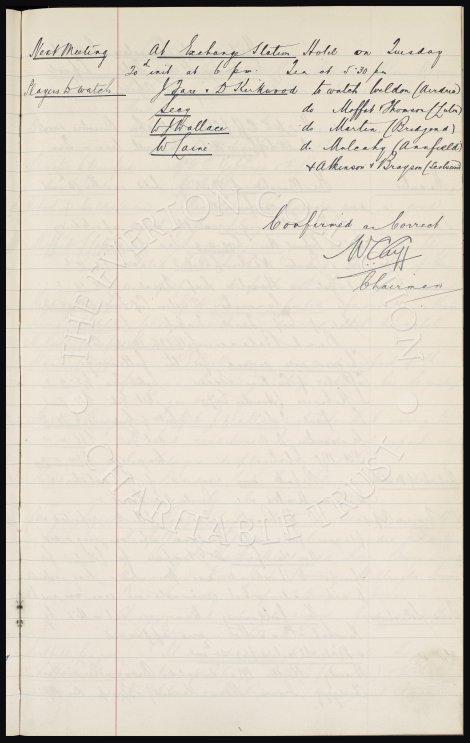 Next Meeting At Exchange Station Hotel on Tuesday
20th inst at 6 pm. Tea at 5.30 pm
Players to watch J Fare & D Kirkwood to watch Weldon (Airdrie)
Secy do Moffat & Thomson (Luton)
W J Wallace do Martin
W Laine do Mulcahy (Annfield)
& Atkinson &
Confirmed as Correct
W.C. Cuff
Chairman
THE EVERTON COLLECTION
CHARITABLE TRUST